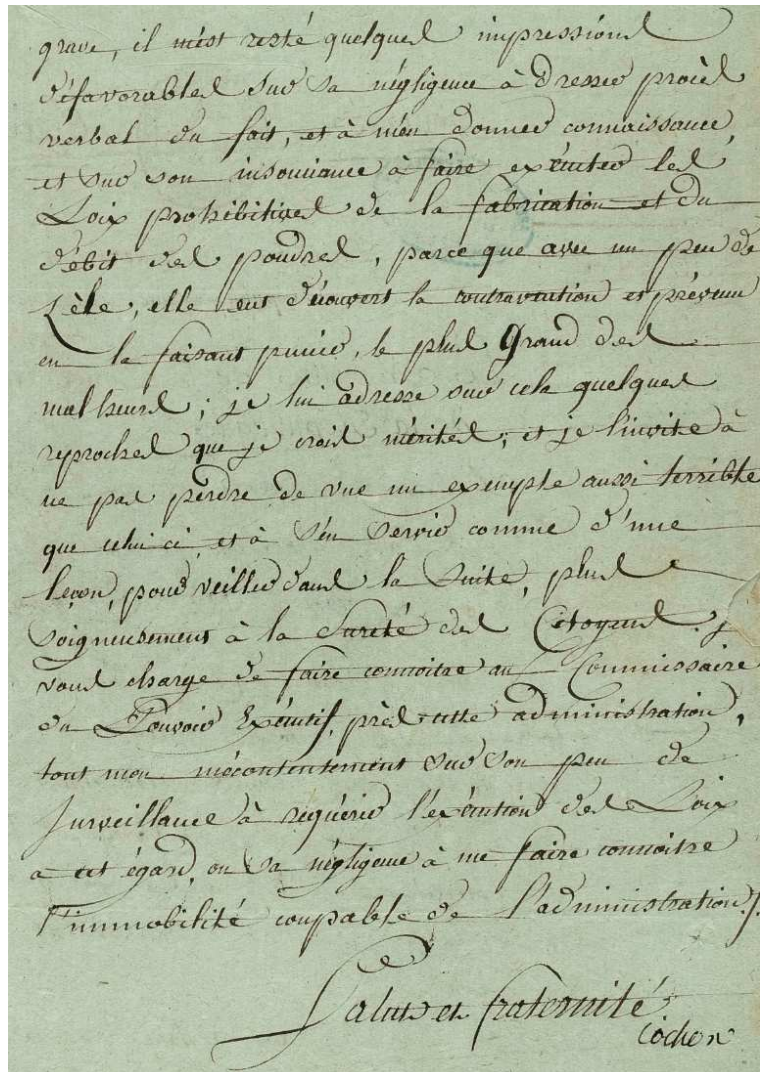 grave, il m'est resté quelques impressions
défavorables sur sa négligence à dresser procès
verbal du fait, et à m'en donner connaissance,
et sur son insouciance à faire exécuter les
Loix prohibitives de la fabrication et du
débit des poudres, parce que avec un peu de
zèle, elle eut découvert la contravention et prévenu
en la faisant punir, le plus Grand des
malheurs ; je lui adresse sur cela quelques
reproches que je crois mérités ; et je l'invite à
ne pas perdre de vue un exemple aussi terrible
que celui ci, et à s'en servir comme d'une
leçon, pour veiller dans la suite, plus
soigneusement à la sureté des Citoyens. je
vous charge de faire connoitre au Commissaire
du Pouvoir Exécutif, près cette administration,
tout mon mécontentement sur son peu de
surveillance à requérir l'exécution des Loix
a cet égard, ou sa négligence à me faire connoitre
l'immobilité coupable de l'administration ./.
Salut et fraternité
Cochon